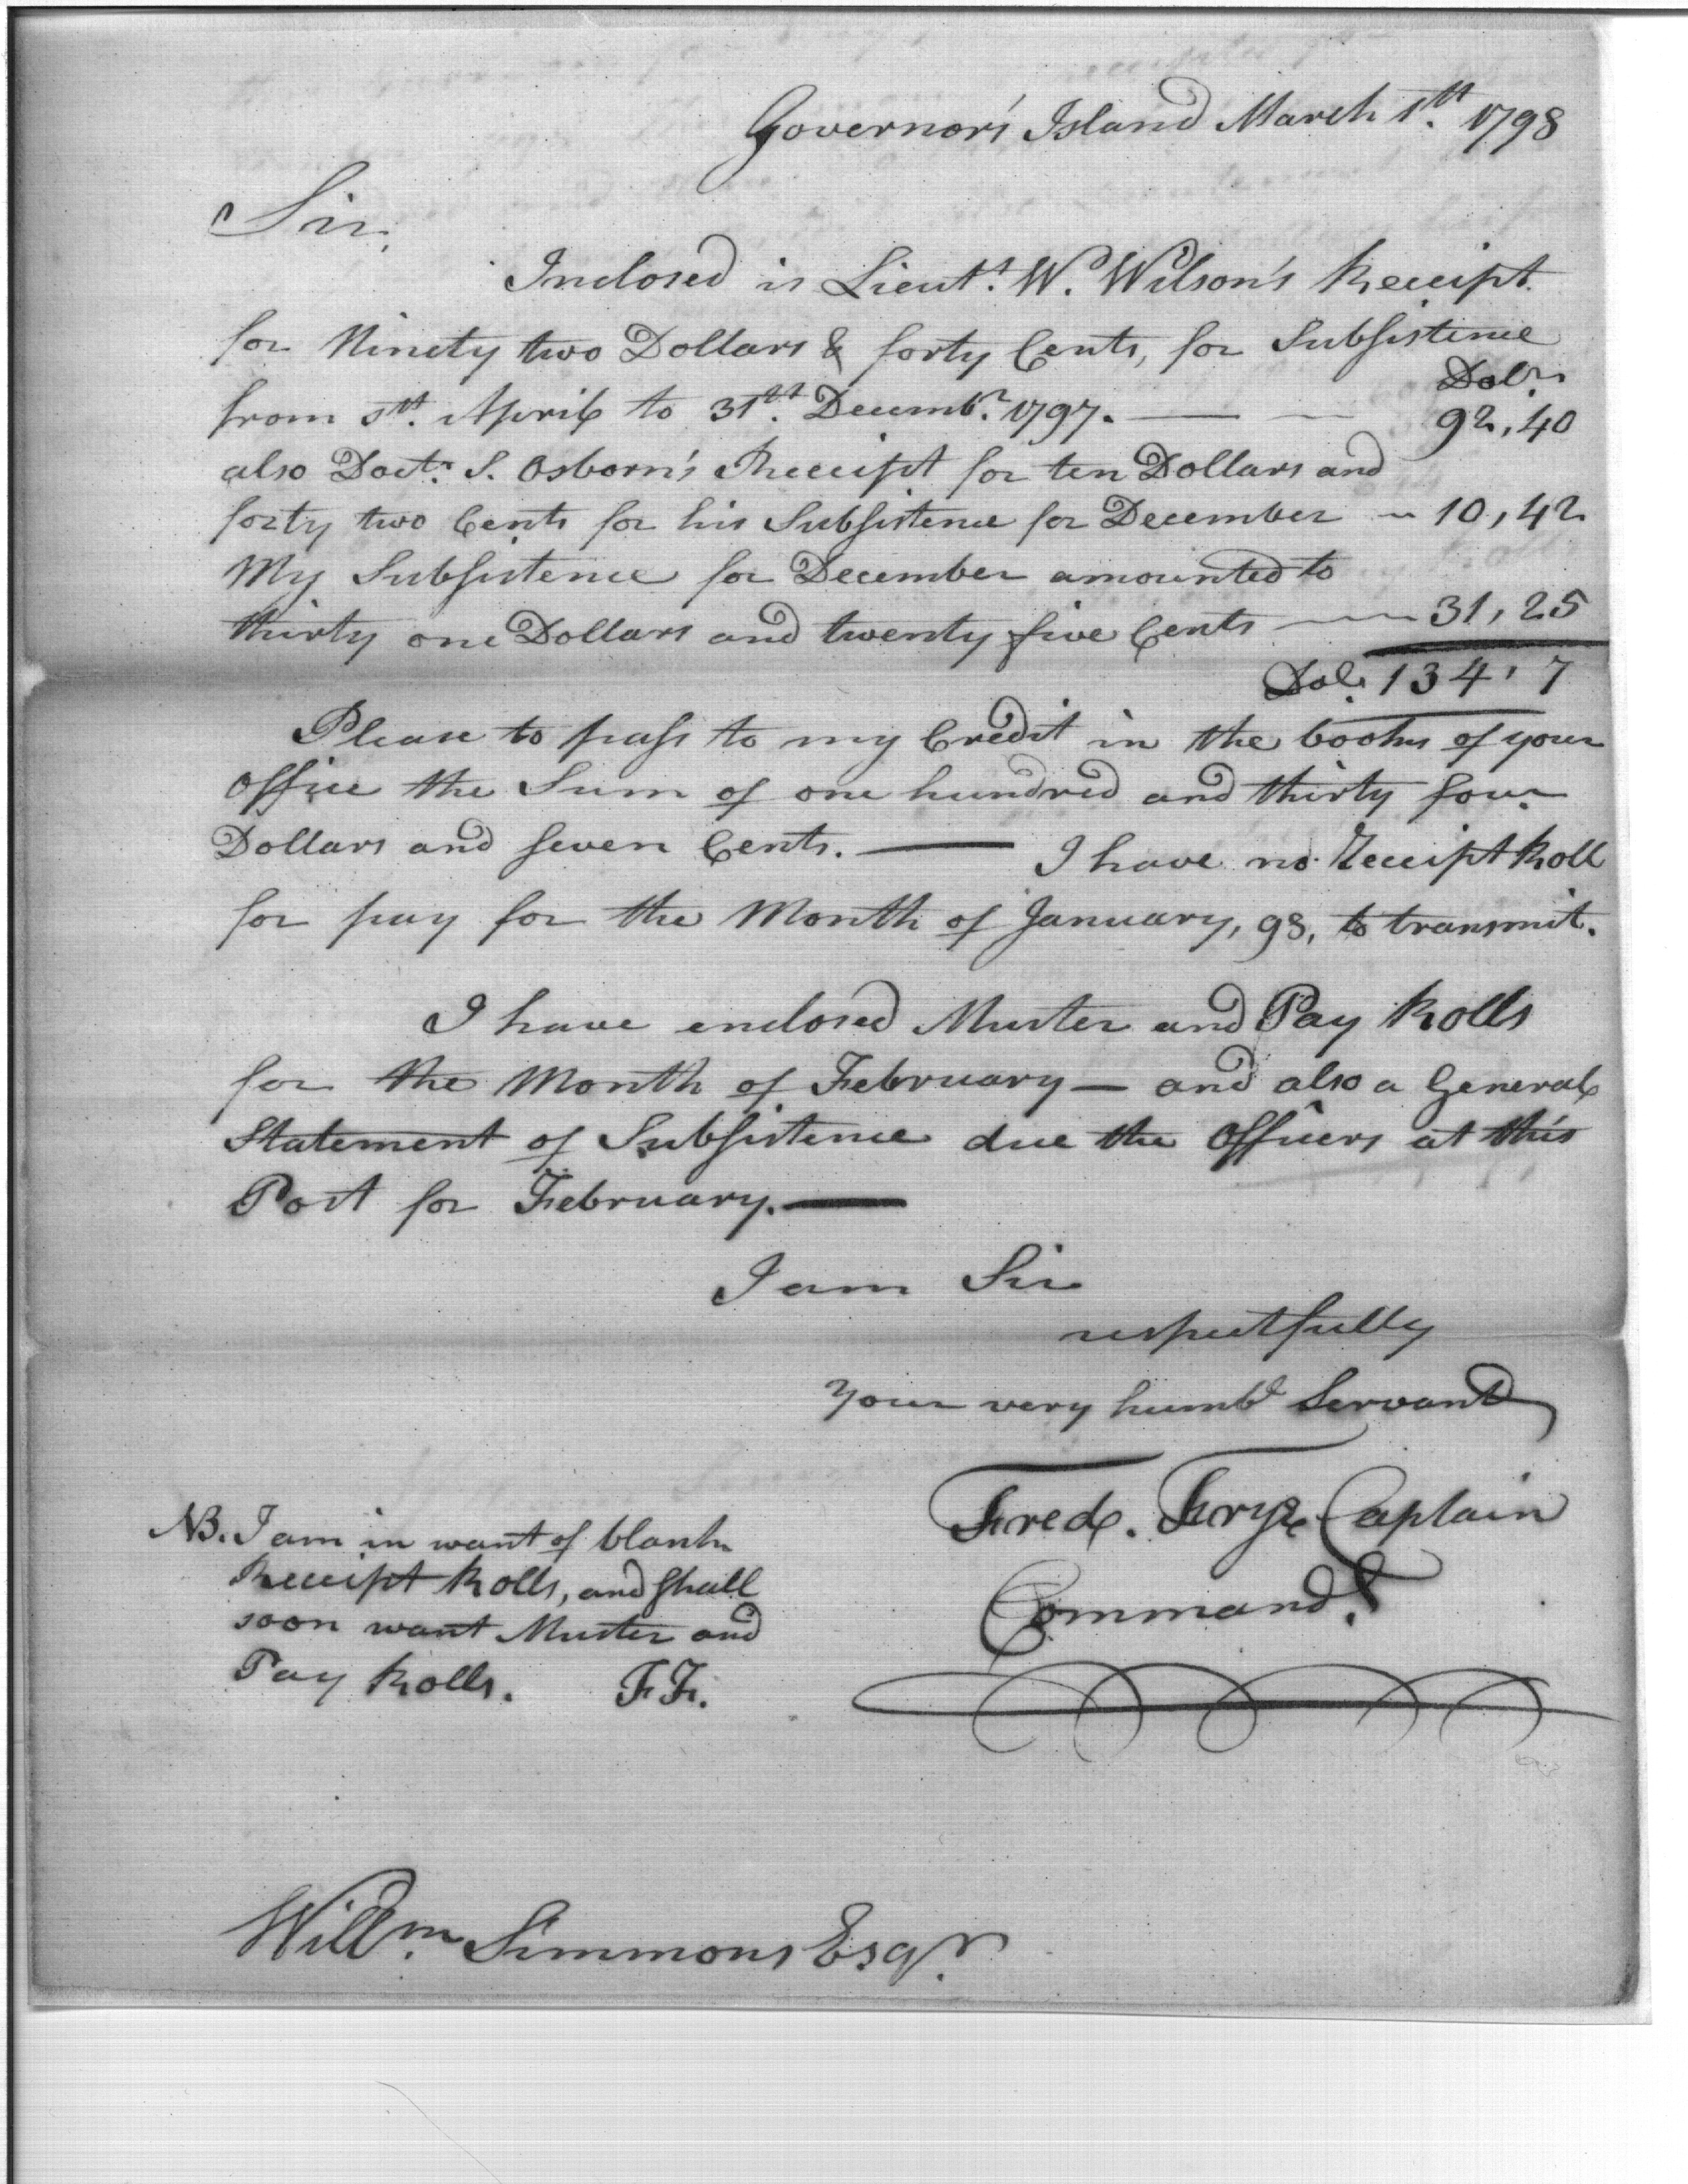 Governor's Island March 1st. 1798
Sir,
Inclosed is Lieut. W. Wilson's Receipt
for Ninety two Dollars & forty Cents, for Subsistence
from 1st. April to 31st. Decembr. 1797. —
Dolrs.
92,40
also Doctr. S. Osborn's Receipt for ten Dollars and
forty two Cents for his Subsistence for December ~ 10,42
My Subsistence for December amounted to
thirty one Dollars and twenty five Cents — 31,25
Dol. 134,7
Please to pass to my Credit in the books of your
Office the Sum of one hundred and thirty four
Dollars and seven Cents. — I have no Receipt Roll
for pay for the Month of January, 98, to transmit.
I have enclosed Muster and Pay Rolls
for the Month of February — and also a General
Statement of Subsistence due the Officers at this
Post for February. —
I am Sir
respectfully
Your very humbl Servant
Fred. Frye Captain
Command.t
NB. I am in want of blank
Receipt Rolls, and shall
soon want Muster and
Pay Rolls. F.F.
Willm. Simmons Esqr.